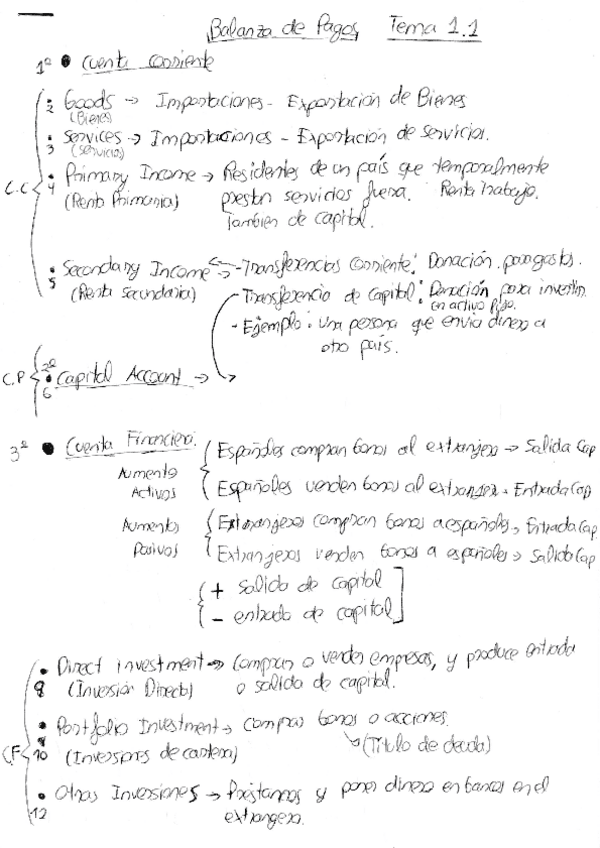 Balanza de Pagos Tema 1.1
1º • Cuenta Corriente
• Goods → Importaciones - Exportación de Bienes
2 (Bienes)
• Services → Importaciones - Exportación de servicios.
3 (servicios)
• Primary Income → Residentes de un país que temporalmente
C.C 4 (Renta Primaria) prestan servicios fuera. Renta trabajo.
También de capital.
• Secondary Income → - Transferencias corriente: Donación para gastos.
5 (Renta secundaria) - Transferencia de capital: Donación para invertir
en activo fijo.
- Ejemplo: una persona que envia dinero a
otro país.
C.P 2º • Capital Account →
6
3º • Cuenta Financiera: Españoles compran bonos al extranjero → Salida Cap
Aumento
Activos Españoles venden bonos al extranjero → Entrada Cap
Aumento Extranjeros compran bonos a españoles → Entrada Cap.
Pasivos Extranjeros venden bonos a españoles → Salida Cap
+ salida de capital
- entrada de capital
• Direct investment → Compran o venden empresas, y produce entrada
8 (Inversión Directa) o salida de capital.
• Portfolio Investment → compras bonos o acciones.
9 (Título de deuda)
C.F 10 (Inversiones de cartera)
• Otras Inversiones → Préstamos y poner dinero en bancos en el
12 extranjero.